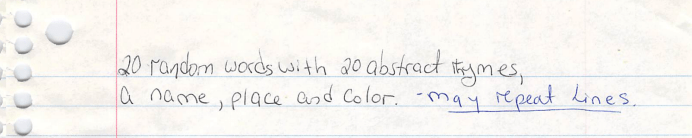 20 random words with 20 abstract rhymes,
a name, place and color. -may repeat lines.